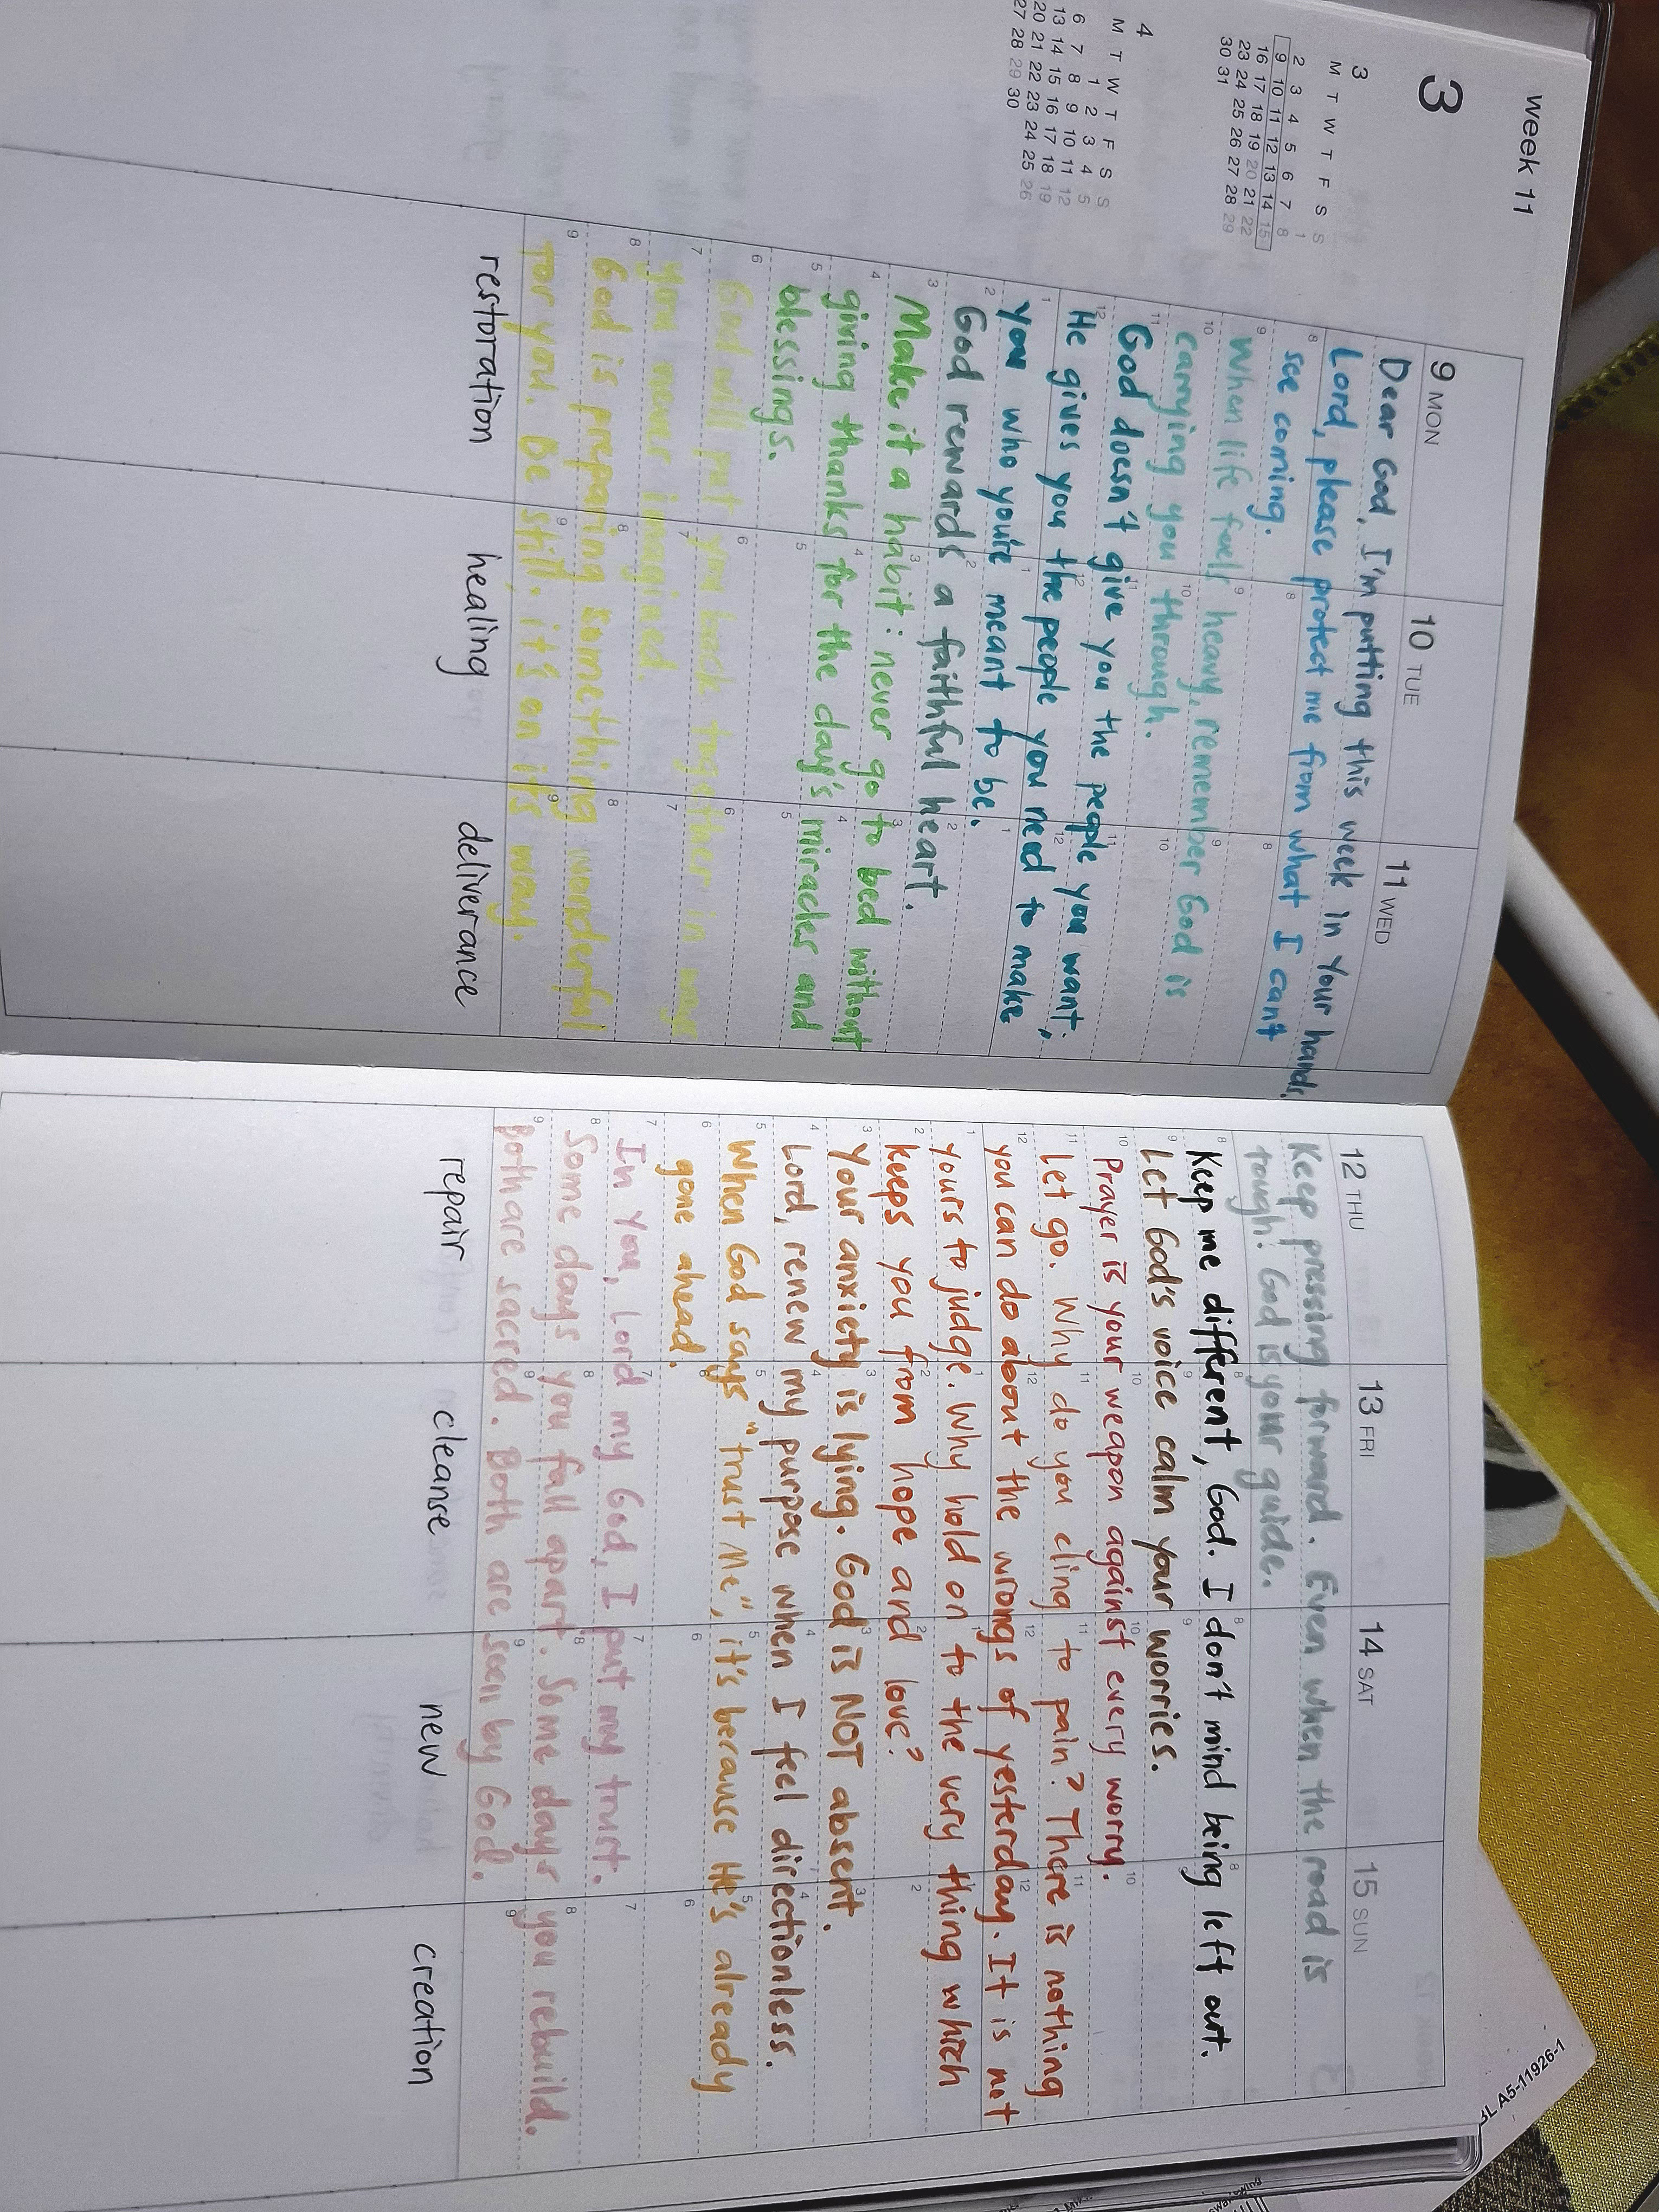 week 11
3
3
M T W T F S S
1
2 3 4 5 6 7 8
9 10 11 12 13 14 15
16 17 18 19 20 21 22
23 24 25 26 27 28 29
30 31
4
M T W T F S S
1 2 3 4 5
6 7 8 9 10 11 12
13 14 15 16 17 18 19
20 21 22 23 24 25 26
27 28 29 30
9 MON 10 TUE 11 WED
Dear God, I'm putting this week in Your hands.
Lord, please protect me from what I can't
see coming.
When life feels heavy, remember God is
carrying you through.
God doesn't give you the people you want.
He gives you the people you need to make
you who you're meant to be.
God rewards a faithful heart.
Make it a habit: never go to bed without
giving thanks for the day's miracles and
blessings.
God will put you back together in ways
you never imagined.
God is preparing something wonderful
for you. Be still, it's on it's way.
restoration healing deliverance
12 THU 13 FRI 14 SAT 15 SUN
Keep pressing forward. Even when the road is
tough! God is your guide.
Keep me different, God. I don't mind being left out.
Let God's voice calm your worries.
Prayer is your weapon against every worry.
Let go. Why do you cling to pain? There is nothing
you can do about the wrongs of yesterday. It is not
yours to judge. Why hold on to the very thing which
keeps you from hope and love?
Your anxiety is lying. God is NOT absent.
Lord, renew my purpose when I feel directionless.
When God says "trust Me", it's because He's already
gone ahead.
In You, Lord my God, I put my trust.
Some days you fall apart. Some days you rebuild.
Both are sacred. Both are seen by God.
repair cleanse new creation
BL A5-11926-1